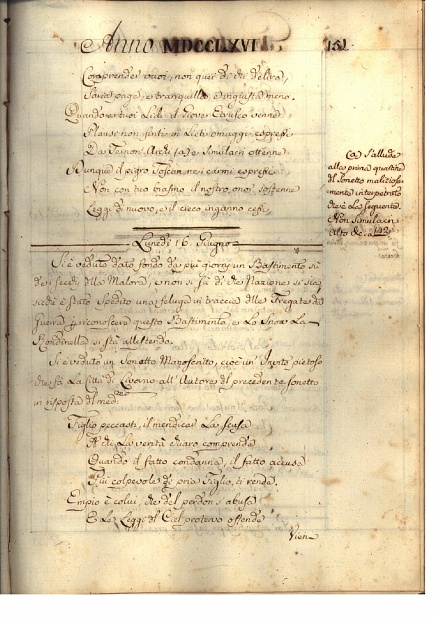 Anno MDCCLXVI
151
Comprender vuoi, non quei di chi delira,
Quando ver tuoi Lidi il Giove Etrusco venne
Plausi non finti, e Lieti omaggi espressi
Da
Archi, faci e Simulacri ottenne
il nero Toscan nei carmi espressi
Non con tuo biasmo il nostro onor sostenne
Leggi di nuovo, e il cieco inganno cessi.
(a) S'allude
alla prima quartina
del Sonetto maliziosa-
mente interpetrata
che è La seguente
Non Simulacri
Archi &c. a 142
Lunedì 16. Giugno
Si è veduto dar fondo da più giorni un Bastimento
della Malora, e non si sà di che Nazione si sia,
è stato Spedito una feluga in traccia delle Fregate da
Guerra p. riconoscere questo Bastimento, e Lo Snow La
Rondinella si stà allestendo.
Si è veduto un Sonetto Manoscritto, cioè un' Invito pietoso
che fà La Città di Livorno all' Autore del precedente Sonetto
in risposta del med.mo
Figlio peccasti, il mendicar La scusa
A chi La verità chiaro comprende
Quando il fatto condanna, il fatto accusa
Più colpevole di pria Figlio, ti rende.
Empio è colui, che del perdon s'abusa
E Le Leggi del Ciel protervo offende
Vien